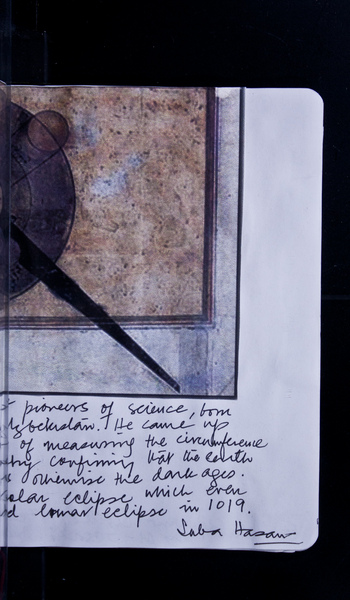 pioneers of science, born
Uzbekistan. He came up
of measuring the circumference
confirming that the earth
otherwise the dark ages.
solar eclipse which even
lunar eclipse in 1019.
Saba Hasan